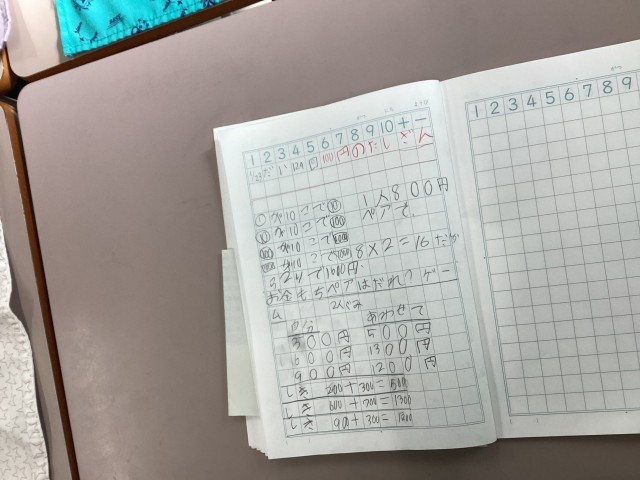 1 2 3 4 5 6 7 8 9 10 + −
100円のたしざん
①が10こで⑩
⑩が10こで100
100が10こで1000
が10こで
1人800円
ペアで
8×2=16
で1600円
お金もちペアはだれ？ゲー
ム
自分 あわせて
300円 500円
600円 1300円
900円 1200円
しき 200+300=500
しき 600+700=1300
しき 900+300=1200
1 2 3 4 5 6 7 8 9